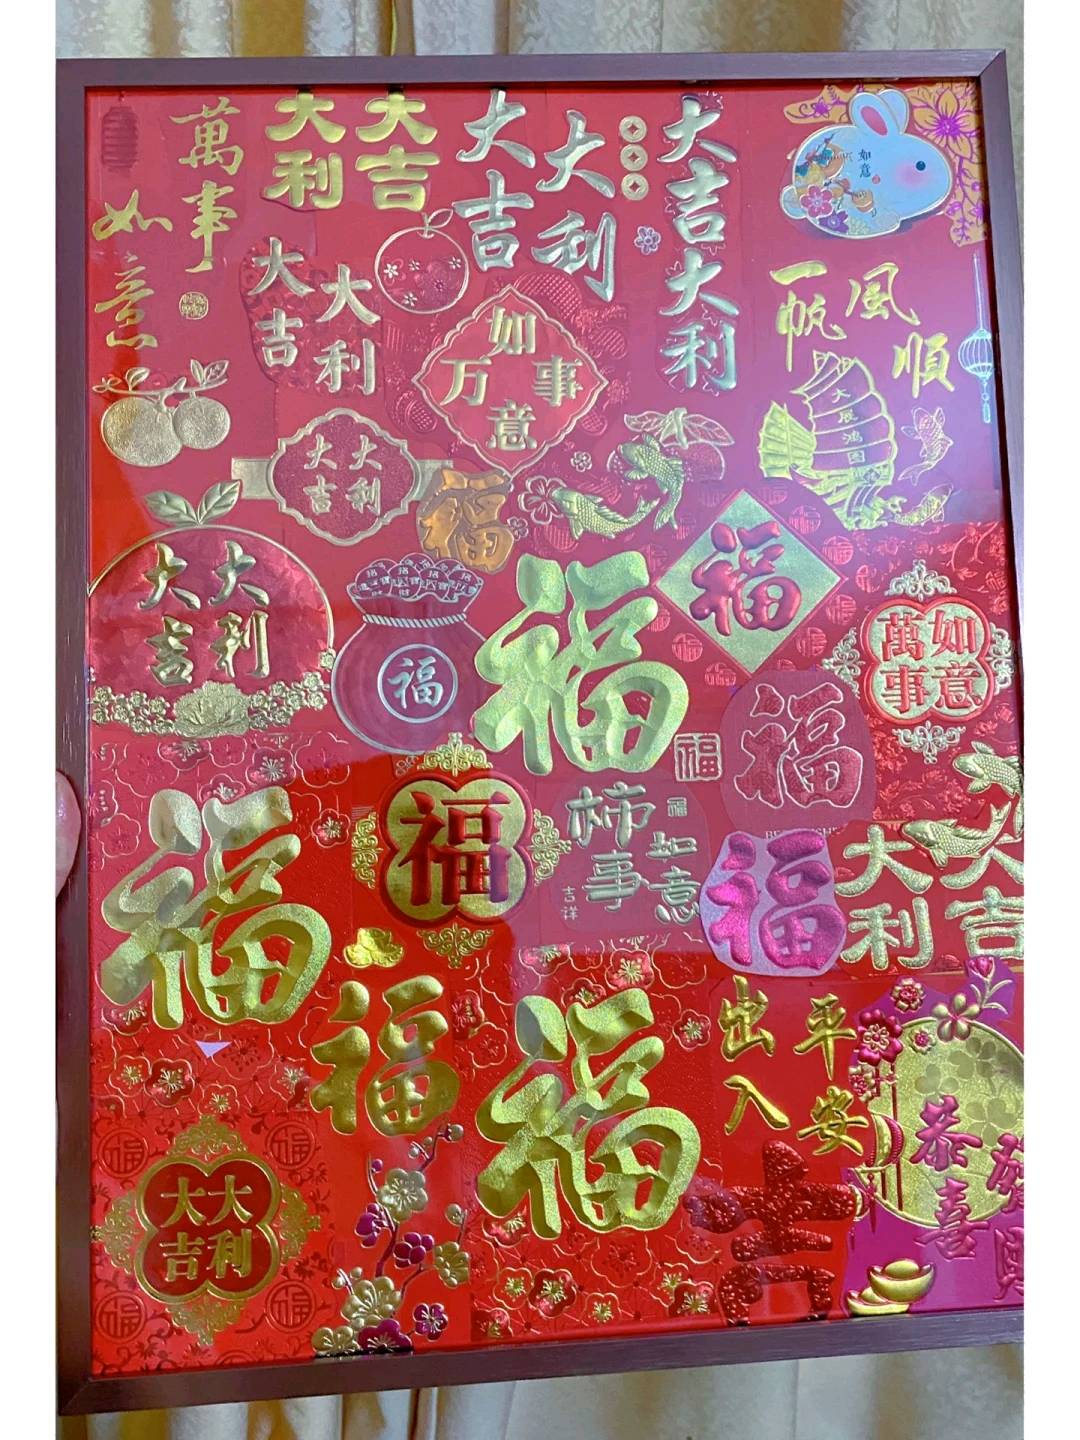 萬事
如意
大吉
大利
大吉
大利
大吉大利
如意
大吉
大利
如事意万
一帆
風順
大展鴻圖
大吉
大利
福
大吉
大利
福
福
福
福
萬事
如意
福
福
福
福
柿事
福
如意
吉祥
福
大吉
大利
福
福
出入
平安
恭喜
吉
大大
吉利
福
福
福